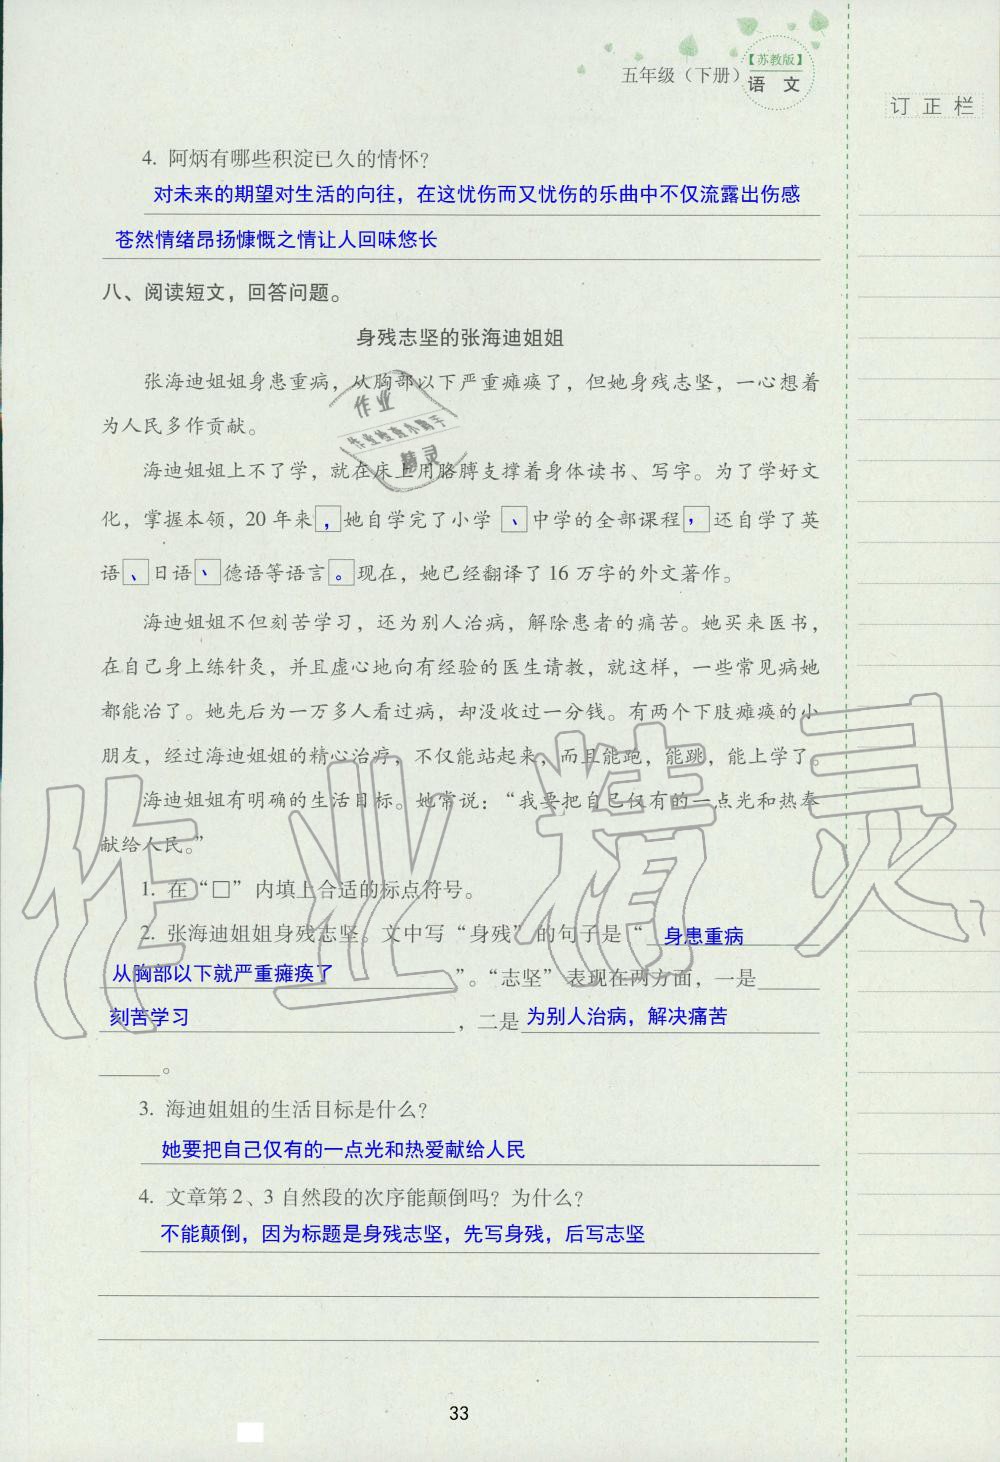 【苏教版】
五年级（下册） 语 文
订 正 栏
4. 阿炳有哪些积淀已久的情怀？
对未来的期望对生活的向往，在这忧伤而又忧伤的乐曲中不仅流露出伤感
苍然情绪昂扬慷慨之情让人回味悠长
八、阅读短文，回答问题。
身残志坚的张海迪姐姐
张海迪姐姐身患重病，从胸部以下严重瘫痪了，但她身残志坚，一心想着
为人民多作贡献。
海迪姐姐上不了学，就在床上用胳膊支撑着身体读书、写字。为了学好文
化，掌握本领，20 年来，她自学完了小学、中学的全部课程，还自学了英
语、日语、德语等语言。现在，她已经翻译了 16 万字的外文著作。
海迪姐姐不但刻苦学习，还为别人治病，解除患者的痛苦。她买来医书，
在自己身上练针灸，并且虚心地向有经验的医生请教，就这样，一些常见病她
都能治了。她先后为一万多人看过病，却没收过一分钱。有两个下肢瘫痪的小
朋友，经过海迪姐姐的精心治疗，不仅能站起来，而且能跑，能跳，能上学了。
海迪姐姐有明确的生活目标。她常说：“我要把自己仅有的一点光和热奉
献给人民。”
1. 在“□”内填上合适的标点符号。
2. 张海迪姐姐身残志坚。文中写“身残”的句子是“ 身患重病
从胸部以下就严重瘫痪了 ”。“志坚”表现在两方面，一是
刻苦学习 ，二是 为别人治病，解决痛苦
。
3. 海迪姐姐的生活目标是什么？
她要把自己仅有的一点光和热爱献给人民
4. 文章第 2、3 自然段的次序能颠倒吗？为什么？
不能颠倒，因为标题是身残志坚，先写身残，后写志坚
33
作业
作业检查小助手
精灵
作业精灵